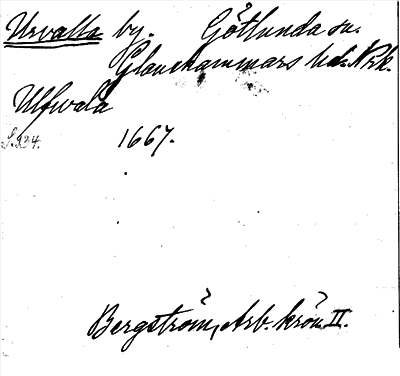 Urvalla by. Götlunda sn.
Glanshammars hd. Nrk.
Ulfwala
S. 234. 1667.
Bergström, Arb. krön. II.